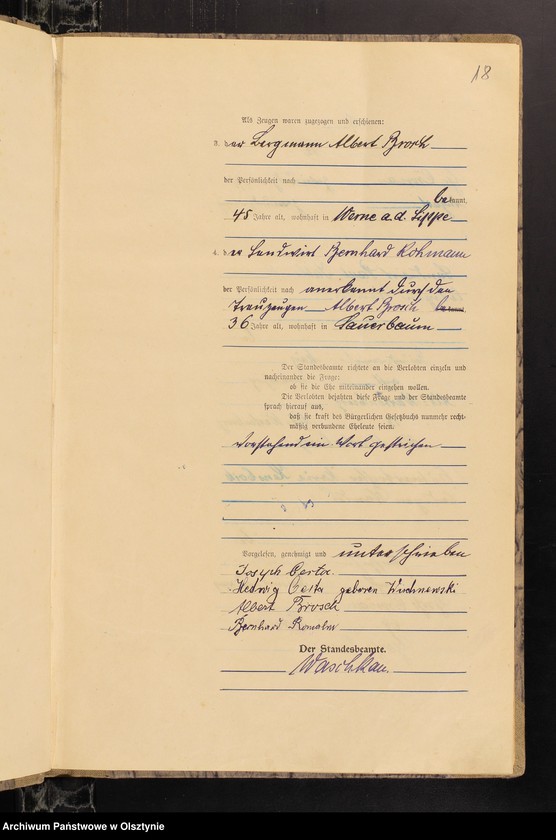 18
Als Zeugen waren zugezogen und erschienen:
3. der Bergmann Albert Brosch
der Persönlichkeit nach
bekannt,
45 Jahre alt, wohnhaft in Werne a.d. Lippe
4. der Landwirt Bernhard Rohmann
der Persönlichkeit nach anerkannt durch den
Trauzeugen Albert Brosch bekannt,
36 Jahre alt, wohnhaft in Sauerbaum
Der Standesbeamte richtete an die Verlobten einzeln und
nacheinander die Frage:
ob sie die Ehe miteinander eingehen wollen.
Die Verlobten bejahten diese Frage und der Standesbeamte
sprach hierauf aus,
daß sie kraft des Bürgerlichen Gesetzbuchs nunmehr recht-
mäßig verbundene Eheleute seien.
Vorstehend ein Wort gestrichen
Vorgelesen, genehmigt und unterschrieben
Joseph
Hedwig geboren
Albert Brosch
Bernhard
Der Standesbeamte.
Waschkau.
Archiwum Państwowe w Olsztynie